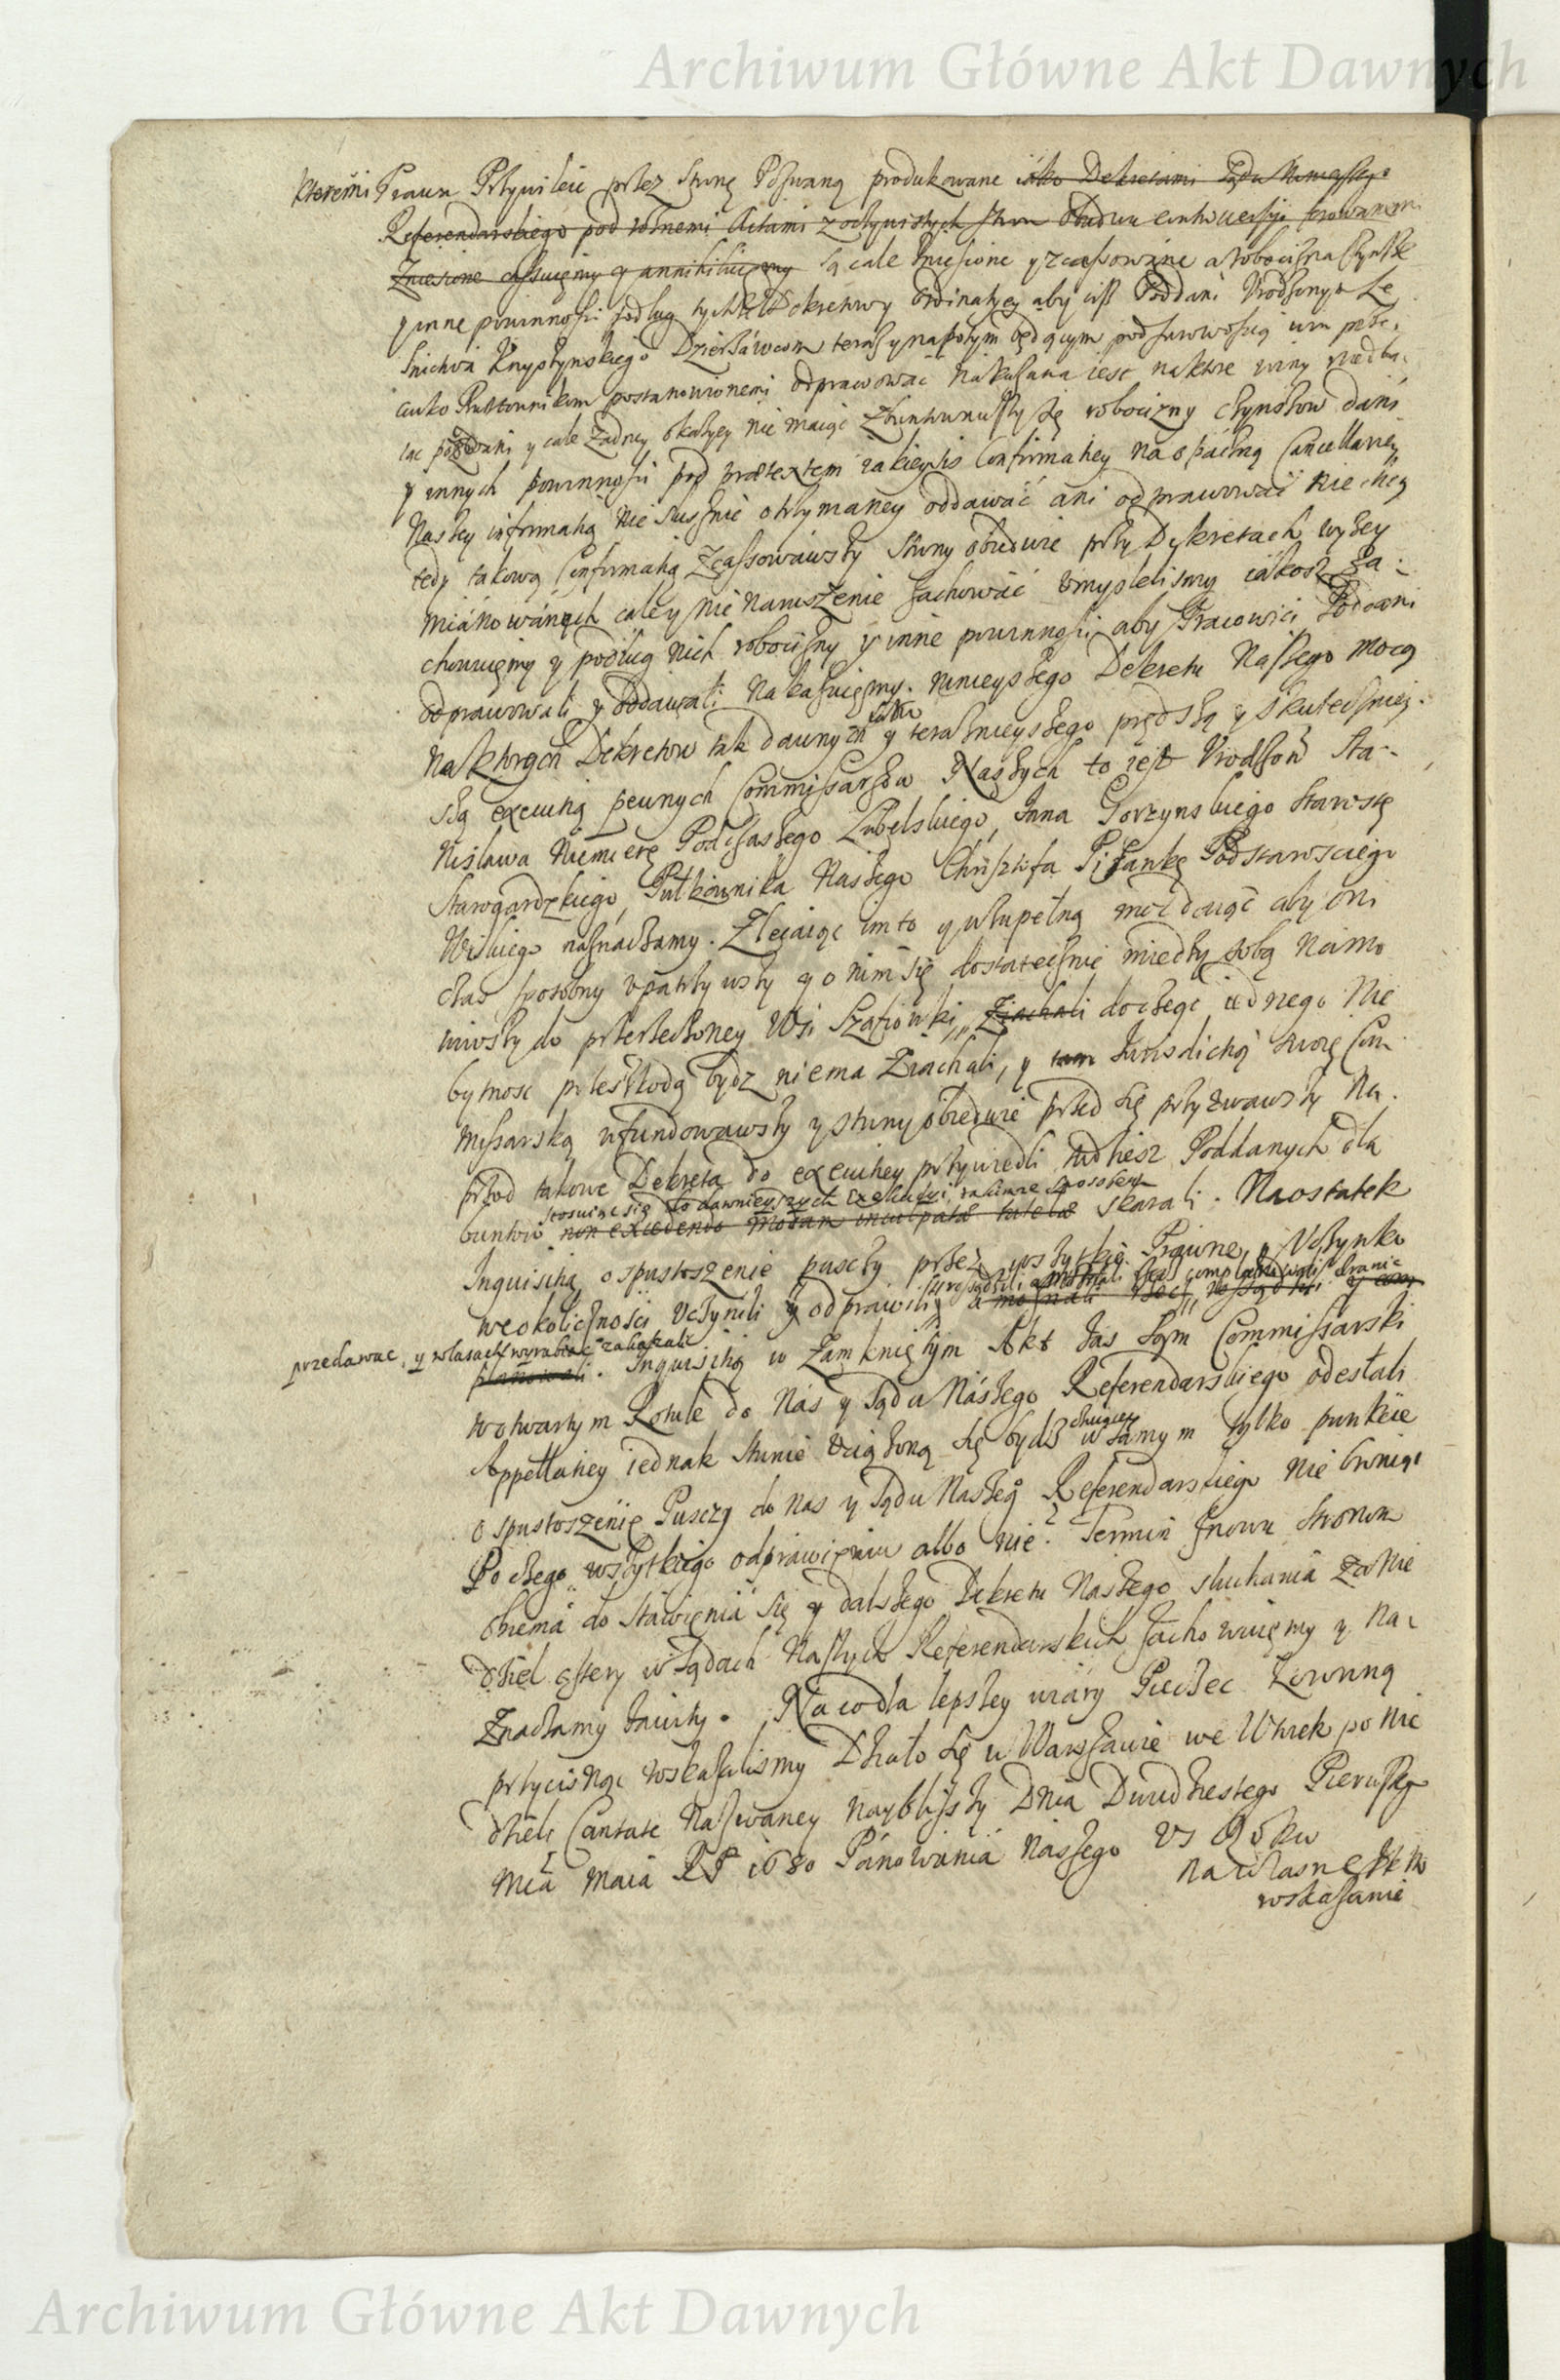 Archiwum Główne Akt Dawnych
ktoremi Prawa Przywileie przez stronę Pozwaną produkowane iako Dekretami Sądu Naszego
Referendarskiego pod roznemi Actami z oczywistych stron obudwu controwersyi
Zniesione cassuięmy y annihiluięmy są cale zniesione y zcassowane a robocizna czynsze
y inne powinnosci podług tychze Dekretow y Ordinatiey aby ciż Poddani Urodzonym Le
snictwa Knyszynskiego Dzierżáwcom teraz y napotym będącym pod surowoscią win
postanowionemi odprawować nakazana iest na ktore winy niedba
iąc pozwani y cale żadney okazyey nie maiąc zbuntowawszy się robocizny czynszow dani
y innych powinnosci pod praetextem iakieysis Confirmatiey na opáczną Cancellariey
Naszey informatią nie słusznie otrzymaney oddawáć ani odprawować nie chcą
tedy takową Confirmatią zcassowawszy strony obiedwie przy Dekretach wyżey
miánowánych cale y nie naruszenie zachowáć umyslelismy iákosz za-
chowuięmy y podług nich robocizny y inne powinnosci aby Pracowici Poddani
odprawowali y oddawali nakazuięmy. ninieyszego Dekretu Naszego mocą
Na ktorych Dekretow tak dawnych iako y teraznieyszego prędszą y skutecznieij-
szą execucią pewnych Commissarzow Naszych to iest Urodzon Sta-
nisława Niemierę Podczaszego Lubelskiego, Jana Gorzynskiego Starostę
Starogardzkiego, Pułkownika Naszego Chrisztofa Pisankę Podstarosciego
Wiskiego naznaczamy. Zlecaiąc im to y zupełną moc daiąc aby oni
czas sposobny upatrzywszy y o nim się dostatecznie miedzy sobą namo
wiwszy do przerzeczoney Wsi Szafrowki, Ziachali do czego iednego nie
bytnosc przeszkodą bydz niema Ziachali, y tam Jurisdictią swoię Com
missarską ufundowawszy y strony obiedwie przed się przyzwawszy na-
przod takowe Dekreta do execucyey przywiedli tudziesz Poddanych dla
stosuiąc się do dawnieyszych Exekucyi, takimze sposobem
buntow non excedendo modum inculpatae tutelae skarali. Naostatek
Inquisitią o spustoszenie puszczy przez wszytkie
weokolicznosci uczynili y odprawili
przedawac, y w lasach wyrabiac zakazali
Inquisitią w Zamknię tym Akt zas sąm Commissarski
wotwartym Rotule do Nás y Sądu Nászego Referendarskiego odesłali
Appellatiey iednak stronie uciążoną się bydz chcącey w samym tylko punkcie
o spustoszenie Puszczy do nas y Sądu Naszego Referendarskiego nie broniąc
Po czego wszytkiego odpráwieniu albo nie. Termin znowu stronom
obiema do stáwięnia się y dalszego Dekretu Naszego słuchania zá nie
dziel cztery w Sądach Naszych Referendarskich zachowuięmy y na-
znaczamy záwity. Na co dla lepszey wiáry Pieczec Koronną
przycisnąc roskazalismy Działo się w Warszawie we Wtorek po nie
dzieli Cantate nazwaney nayblizszy Dnia Dwudziestego Pierwszego
Mca Maia RP 1680 Pánowánia Naszego VI Roku
Na własne JKM
roskazanie
Archiwum Główne Akt Dawnych